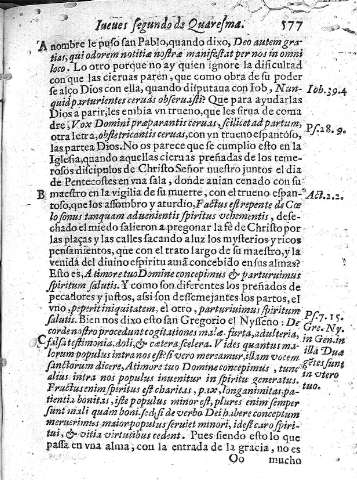 Iueues segundo de Quaresma. 577
A nombre le puso san Pablo, quando dixo, Deo autem gra-
tias, qui odorem notitiæ nostræ manifestat per nos in omni
loco. Lo otro porque no ay quien ignore la dificultad
con que las cieruas paren, que como obra de su poder
se alço Dios con ella, quando disputaua con Job, Nun-
quid parturientes ceruas obseruasti? Que para ayudarlas
Iob.39.4
Dios a parir, les enbia vn trueno, que les sirua de coma
dre, Vox Domini præparantis ceruas, scilicet ad partum,
Ps.28.9.
otra letra, obstetricantis ceruas, con vn trueno espantoso,
las partea Dios. No os parece que se cumplio esto en la
Iglesia, quando aquellas cieruas preñadas de los teme-
rosos discipulos de Christo Señor nuestro juntos el dia
de Pentecostes en vna sala, donde auian cenado con su
B maestro en la vigilia de su muerte, con el trueno espan-
Act.2.2.
toso, que los assombro y aturdio, Factus est repente de Cœ
lo sonus tanquam aduenientis spiritus vehementis, dese-
chado el miedo salieron a pregonar la fe de Christo por
las plaças y las calles sacando a luz los mysterios y ricos
pensamientos, que con el trato largo de su maestro, y la
venida del diuino espiritu auiã concebido en sus almas?
Esto es, A timore tuo Domine concepimus & parturiuimus
spiritum salutis. Y como son diferentes los preñados de
pecadores y justos, assi son dessemejantes los partos, el
vno, peperit iniquitatem, el otro, parturiuimus spiritum
Ps.7.15.
salutis. Bien nos dixo esto san Gregorio el Nysseno: De
Gre. Ny.
corde nostro procedunt cogitationes malæ, furta, adulteria,
in Gen. in
C falsa testimonia, doli, & cætera scelera. Vides quantus ma-
illa Duæ
lorum populus intra nos est: si vero mersamur, illam vocem
gẽtes sunt
sanctorum dicere, A timore tuo Domine concepimus, tunc
in vtero
alius intra nos populus inuenitur in spiritu generatus.
tuo.
Fructus enim spiritus est charitas, pax, longanimitas, pa-
tientia, bonitas, iste populus minor est, plures enim semper
sunt mali quam boni, sed si de verbo Dei habere conceptum
meruerimus maior populus seruiet minori, id est caro spiri-
tui, & vitia virtutibus cedent. Pues siendo esto lo que
passa en vna alma, con la entrada de la gracia, no es
Oo mucho